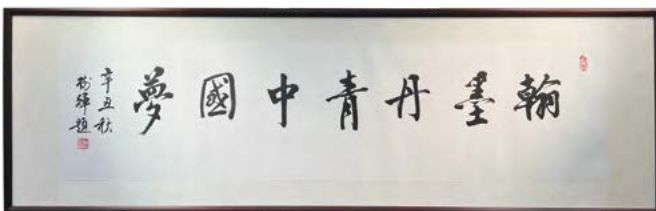 翰墨丹青中國夢
辛丑秋
樹輝題